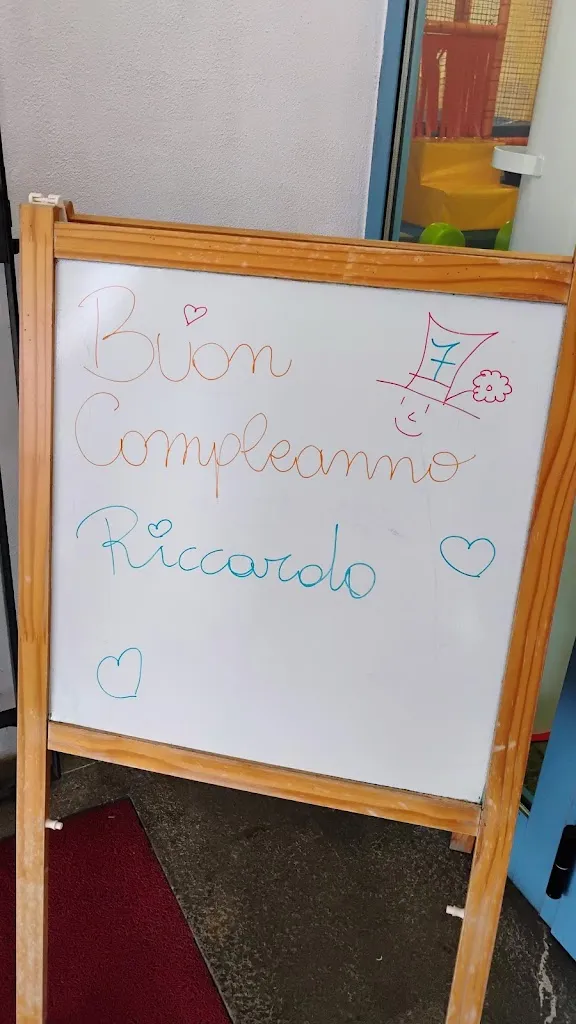 Buon
7
Compleanno
Riccardo